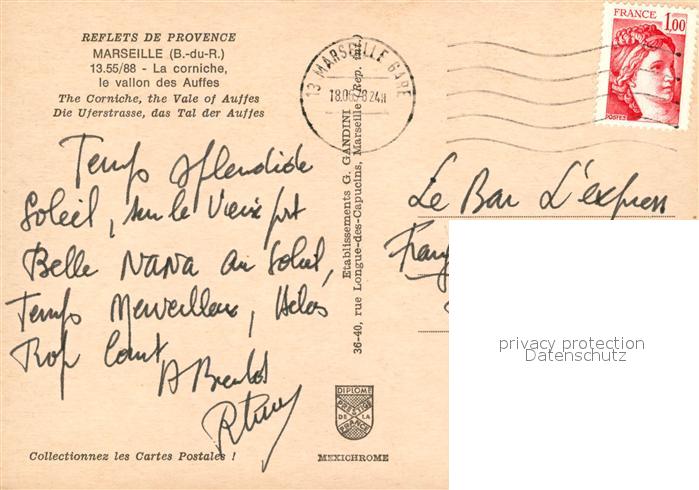 REFLETS DE PROVENCE
MARSEILLE (B.-du-R.)
13.55/88 - La corniche,
le vallon des Auffes
The Corniche, the Vale of Auffes
Die Uferstrasse, das Tal der Auffes
13 MARSEILLE GARE
18.06.78 24H
FRANCE
1.00
POSTES
Temps splendide
Soleil, sur le Vieux port
Belle NANA au Soleil,
Temps Merveilleux, Hélas
Trop Court
A Bientot
Etablissements G. GANDINI
36-40, rue Longue-des-Capucins, Marseille (Rep. int.)
Le Bar L'express
privacy protection
Datenschutz
DIPLOME
PRESTIGE
DE LA
FRANCE
Collectionnez les Cartes Postales !
MEXICHROME